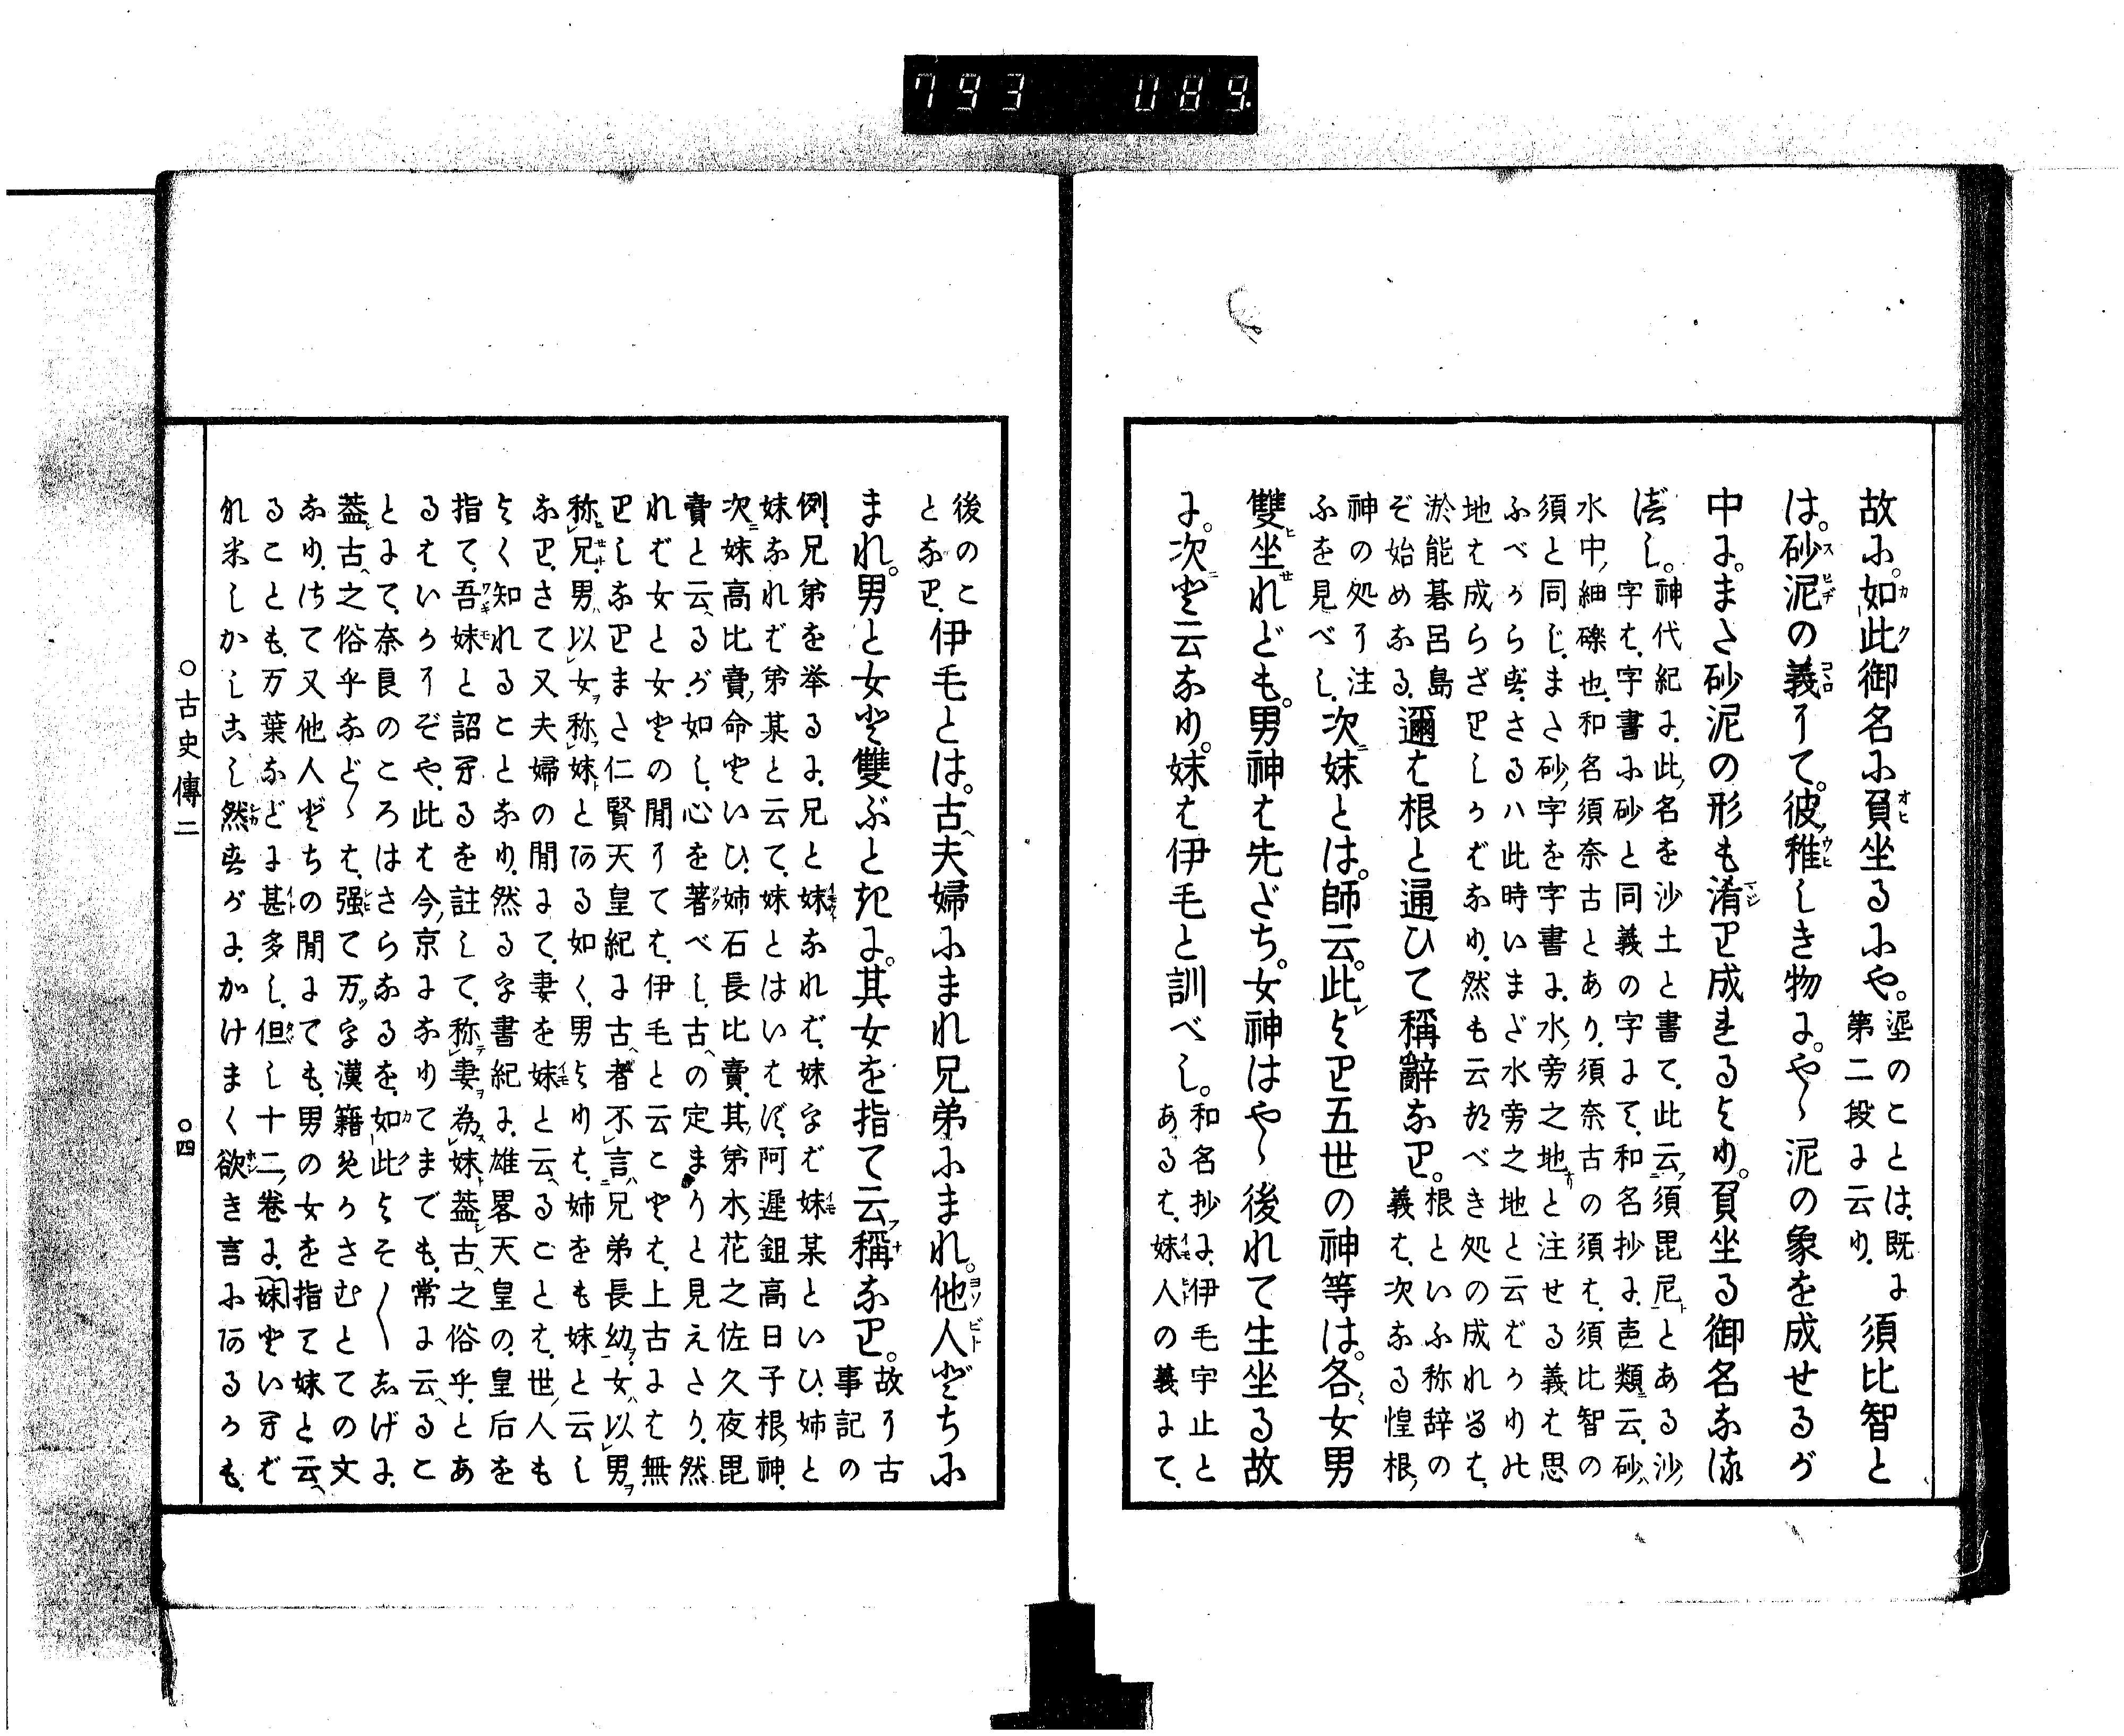 793 089.
故に。如此御名に負坐るにや。埿のことは、既に第二段に云り、須比智と
は。砂泥の義にて。彼稚しき物に。やゝ泥の象を成せるが
中に。また砂泥の形も淆り成まるより。負坐る御名なほ
べし。神代紀に、此名を沙土と書て、此云須毘尼とある沙
字は、字書に砂と同義の字にて、和名抄に、邑類云、砂
水中細礫也、和名須奈古とあり、須奈古の須は、須比智の
須と同じ、また砂字を字書に、水旁之地と注せる義は思
ふべからず、さるハ此時いまだ水旁之地と云ばかりれ
地は成らざりしかばなり、然も云初べき処の成れるは、
淤能碁呂島
ぞ始めなる、邇は根と通ひて稱辭なり。根といふ称辞の
義は、次なる惶根
神の処に注
ふを見べし、次妹とは。師云。此より五世の神等は。各女男
雙坐れども。男神は先だち。女神はやゝ後れて生坐る故
に。次と云なり。妹は伊毛と訓べし。和名抄に、伊毛宇止と
あるは、妹人の義にて、
後のこ
となり、伊毛とは。古夫婦にまれ兄弟にまれ。他人どちに
まれ。男と女と雙ぶときに。其女を指て云稱なり。故に古
事記の
例、兄弟を挙るに、兄と妹なれば、妹をば妹某といひ、姉と
妹なれば、弟某と云て、妹とはいはず、阿遲鉏高日子根神、
次妹高比賣命といひ、姉石長比賣、其弟木花之佐久夜毘
賣と云るが如し、心を著べし、古の定まりと見えたり、然
れば女と女との間にては、伊毛と云ことは、上古には無
りしなりまた仁賢天皇紀に古者不言兄弟長幼、女以男
称兄、男以女称妹とある如く、男よりは、姉をも妹と云し
なり、さて又夫婦の間にて、妻を妹と云ることは、世人も
よく知れることなり、然る字書紀に、雄畧天皇の、皇后を
指て、吾妹と詔するを註して、称妻為妹、蓋古之俗乎、とあ
るはいかにぞや、此は今京になりてまでも、常に云るこ
とにて、奈良のころはさらなるを、如此よそ〱しげに、
蓋古之俗乎などゝは、强て万字漢籍めかさむとての文
なり、さて又他人どちの間にても、男の女を指て妹と云
ることも、万葉などに甚多し、但し十二卷に、妹といすば
れ米しかしこし然すがに、かけまく欲き言にあるかも、
○古史傳二
○四